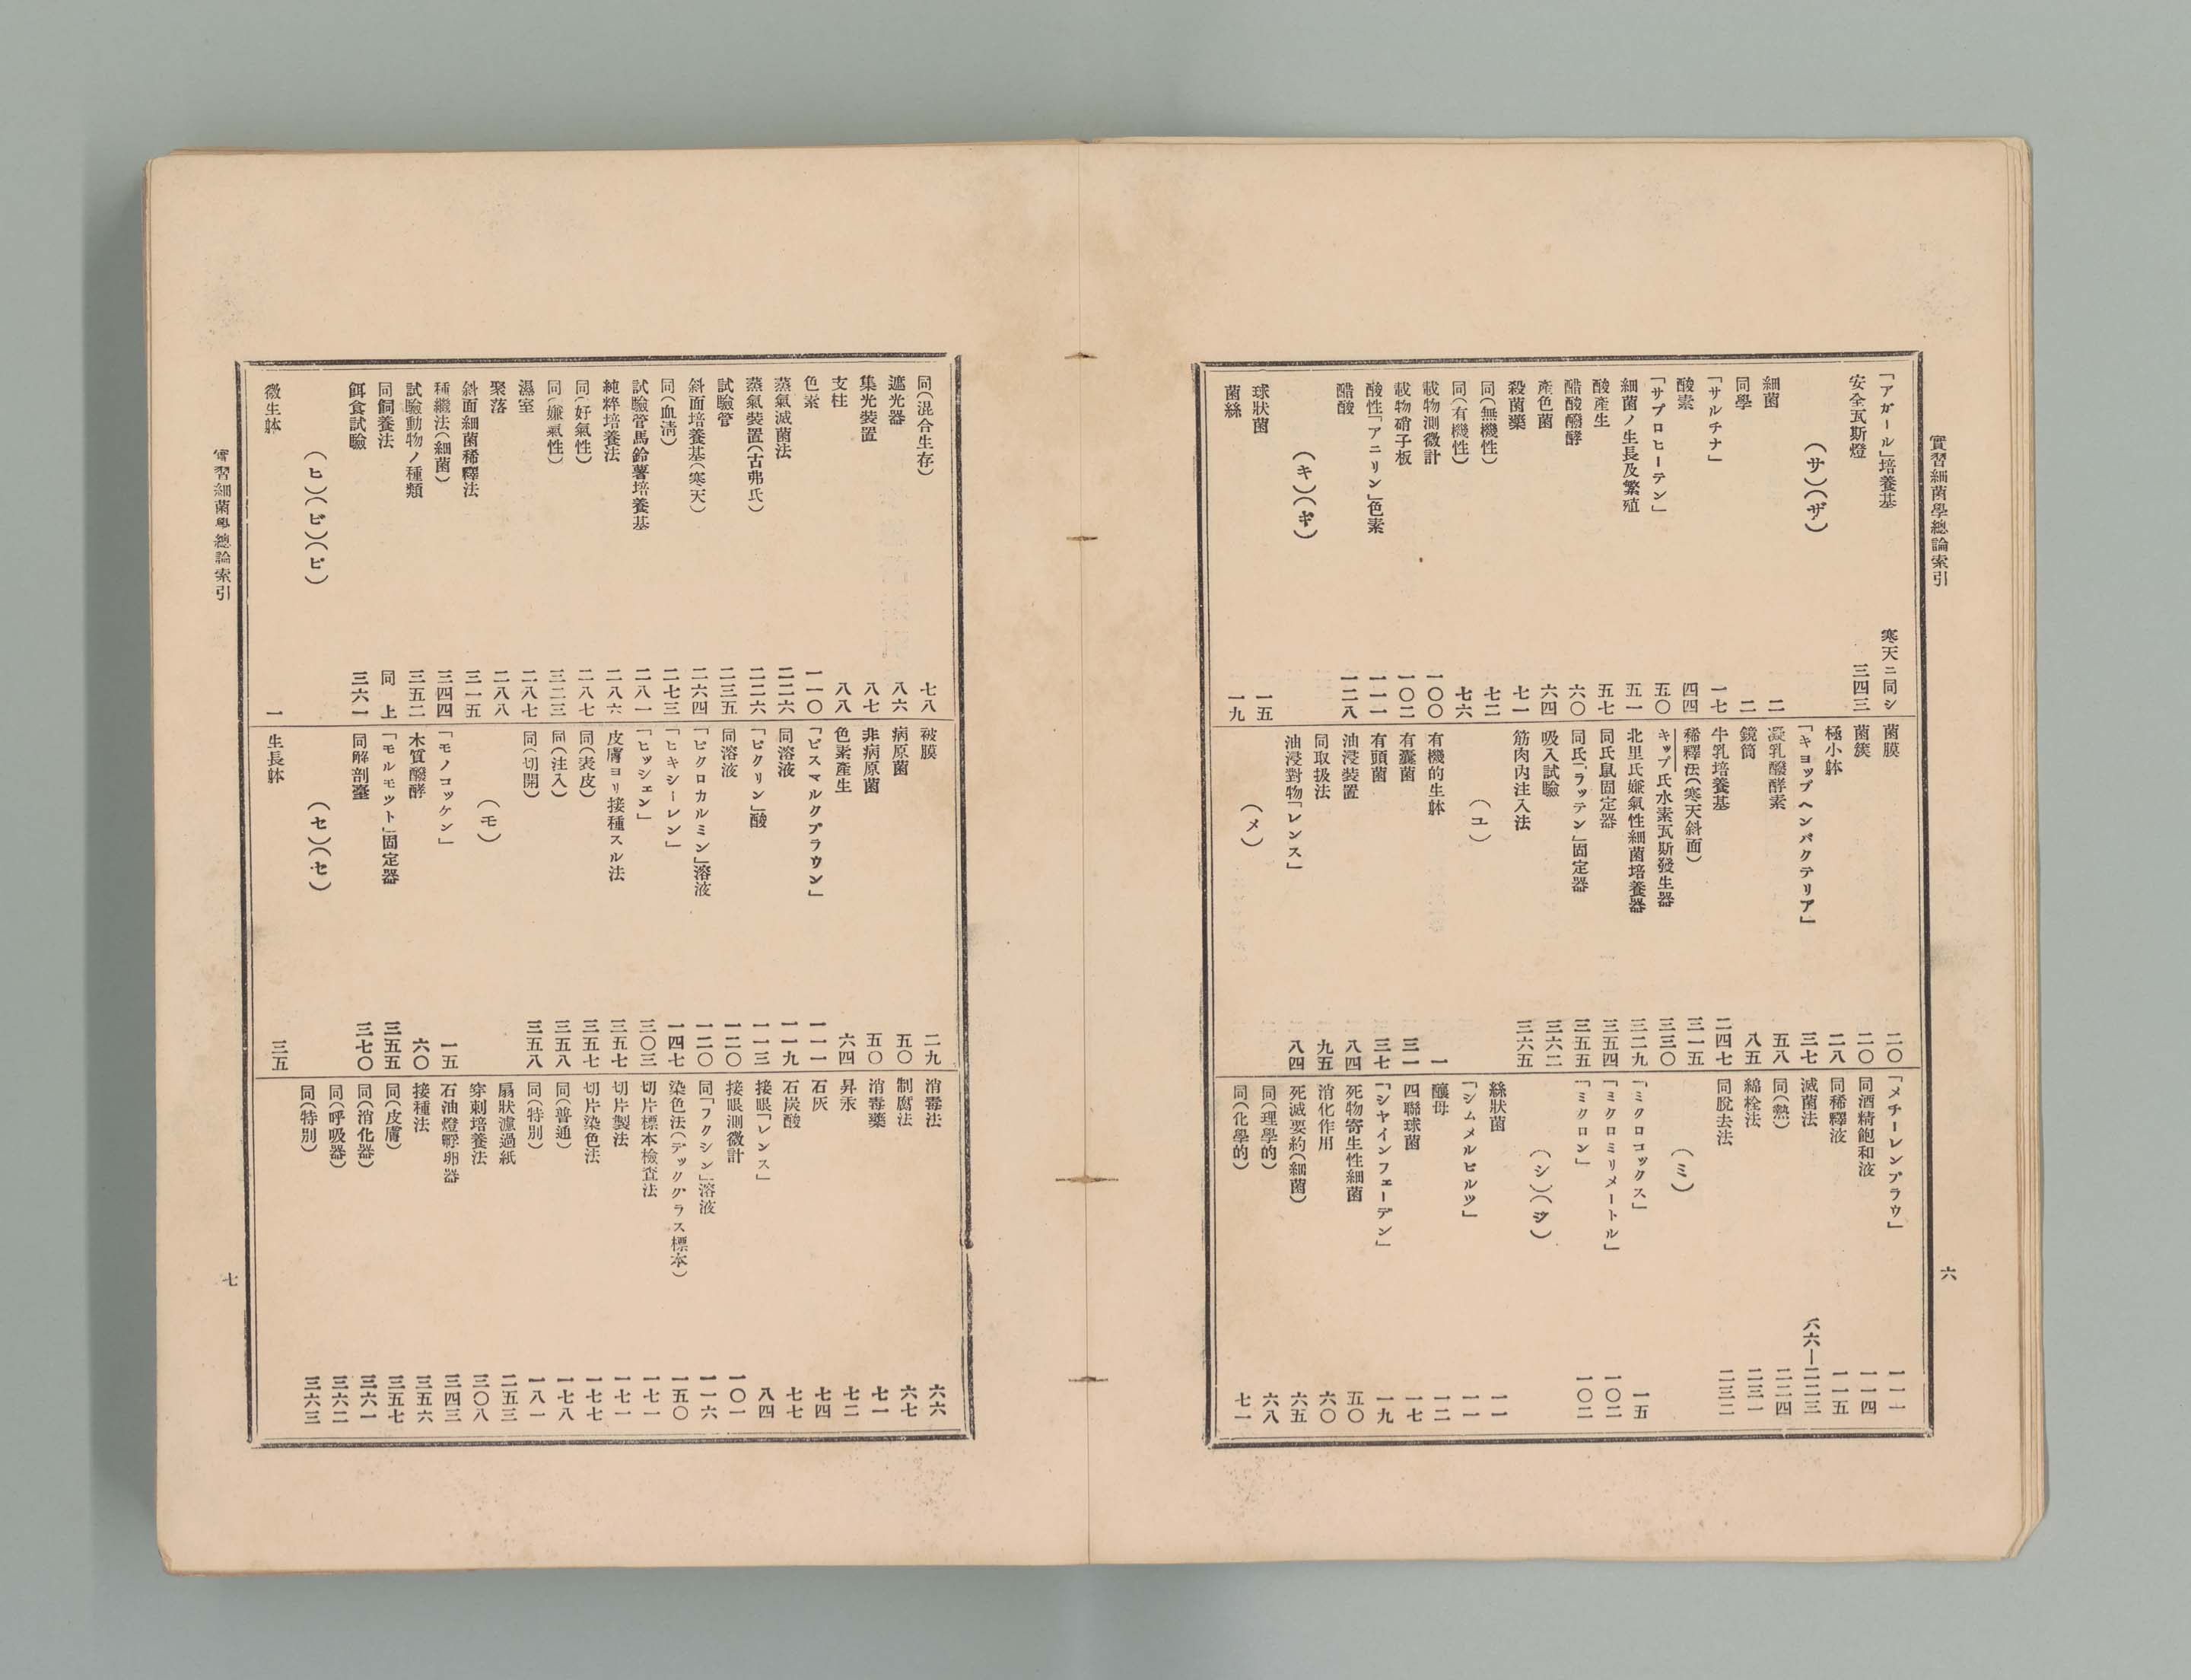 實習細菌學總論索引
六
「アガール」培養基 寒天ニ同シ
安全瓦斯燈 三四三
(サ)(ザ)
細菌 二
同學 二
「サルチナ」 一七
酸素 四四
「サプロヒーテン」 五〇
細菌ノ生長及繁殖 五一
酸產生 五七
醋酸醱酵 六〇
產色菌 六四
殺菌藥 七一
同(無機性) 七二
同(有機性) 七六
載物測微計 一〇〇
載物硝子板 一〇二
酸性「アニリン」色素 一一一
醋酸 一二八
(キ)(ギ)
球狀菌 一五
菌絲 一九
菌膜 二〇
菌簇 二〇
極小躰 二八
「キヨップヘンバクテリア」 三七
凝乳醱酵素 五八
鏡筒 八五
牛乳培養基 二四七
稀釋法(寒天斜面) 三一五
キップ氏水素瓦斯發生器 三三〇
北里氏嫌氣性細菌培養器 三二九
同氏鼠固定器 三五四
同氏「ラッテン」固定器 三五五
吸入試驗 三六二
筋肉內注入法 三六五
(ユ)
有機的生躰 一
有囊菌 三一
有頭菌 三七
油浸裝置 八四
同取扱法 九五
油浸對物「レンス」 八四
(メ)
「メチーレンブラウ」 一一一
同酒精飽和液 一一四
同稀釋液 一一五
滅菌法 六六—二二三
同(熱) 二二四
綿栓法 二三一
同脫去法 二三二
(ミ)
「ミクロコックス」 一五
「ミクロミリメートル」 一〇二
「ミクロン」 一〇二
(シ)(ジ)
絲狀菌 一一
「シムメルピルツ」 一一
釀母 一二
四聯球菌 一七
「シヤインフェーデン」 一九
死物寄生性細菌 五〇
消化作用 六〇
死滅要約(細菌) 六五
同(理學的) 六八
同(化學的) 七一
同(混合生存) 七八
遮光器 八六
集光裝置 八七
支柱 八八
色素 一一〇
蒸氣滅菌法 二二六
蒸氣裝置(古弗氏) 二二六
試驗管 二三五
斜面培養基(寒天) 二六四
同(血清) 二七三
試驗管馬鈴薯培養基 二八一
純粹培養法 二八六
同(好氣性) 二八七
同(嫌氣性) 三二三
濕室 二八七
聚落 二八八
斜面細菌稀釋法 三一五
種繼法(細菌) 三四四
試驗動物ノ種類 三五二
同飼養法 同上
餌食試驗 三六一
(ヒ)(ビ)(ピ)
微生躰 一
被膜 二九
病原菌 五〇
非病原菌 五〇
色素產生 六四
「ビスマルクブラウン」 一一一
同溶液 一一九
「ピクリン」酸 一一三
同溶液 一二〇
「ピクロカルミン」溶液 一二〇
「ヒキシーレン」 一四七
「ヒッシェン」 三〇三
皮膚ヨリ接種スル法 三五七
同(表皮) 三五七
同(注入) 三五八
同(切開) 三五八
(モ)
「モノコッケン」 一五
木質醱酵 六〇
「モルモット」固定器 三五五
同解剖臺 三七〇
(セ)(ゼ)
生長躰 三五
消毒法 六六
制腐法 六七
消毒藥 七一
昇汞 七二
石灰 七四
石炭酸 七七
接眼「レンス」 八四
接眼測微計 一〇一
同「フクシン」溶液 一一六
染色法(デックグラス標本) 一五〇
切片標本檢查法 一七一
切片製法 一七一
切片染色法 一七七
同(普通) 一七八
同(特別) 一八一
扇狀濾過紙 二五三
穿刺培養法 三〇八
石油燈孵卵器 三四三
接種法 三五六
同(皮膚) 三五七
同(消化器) 三六一
同(呼吸器) 三六二
同(特別) 三六三
實習細菌學總論索引
七